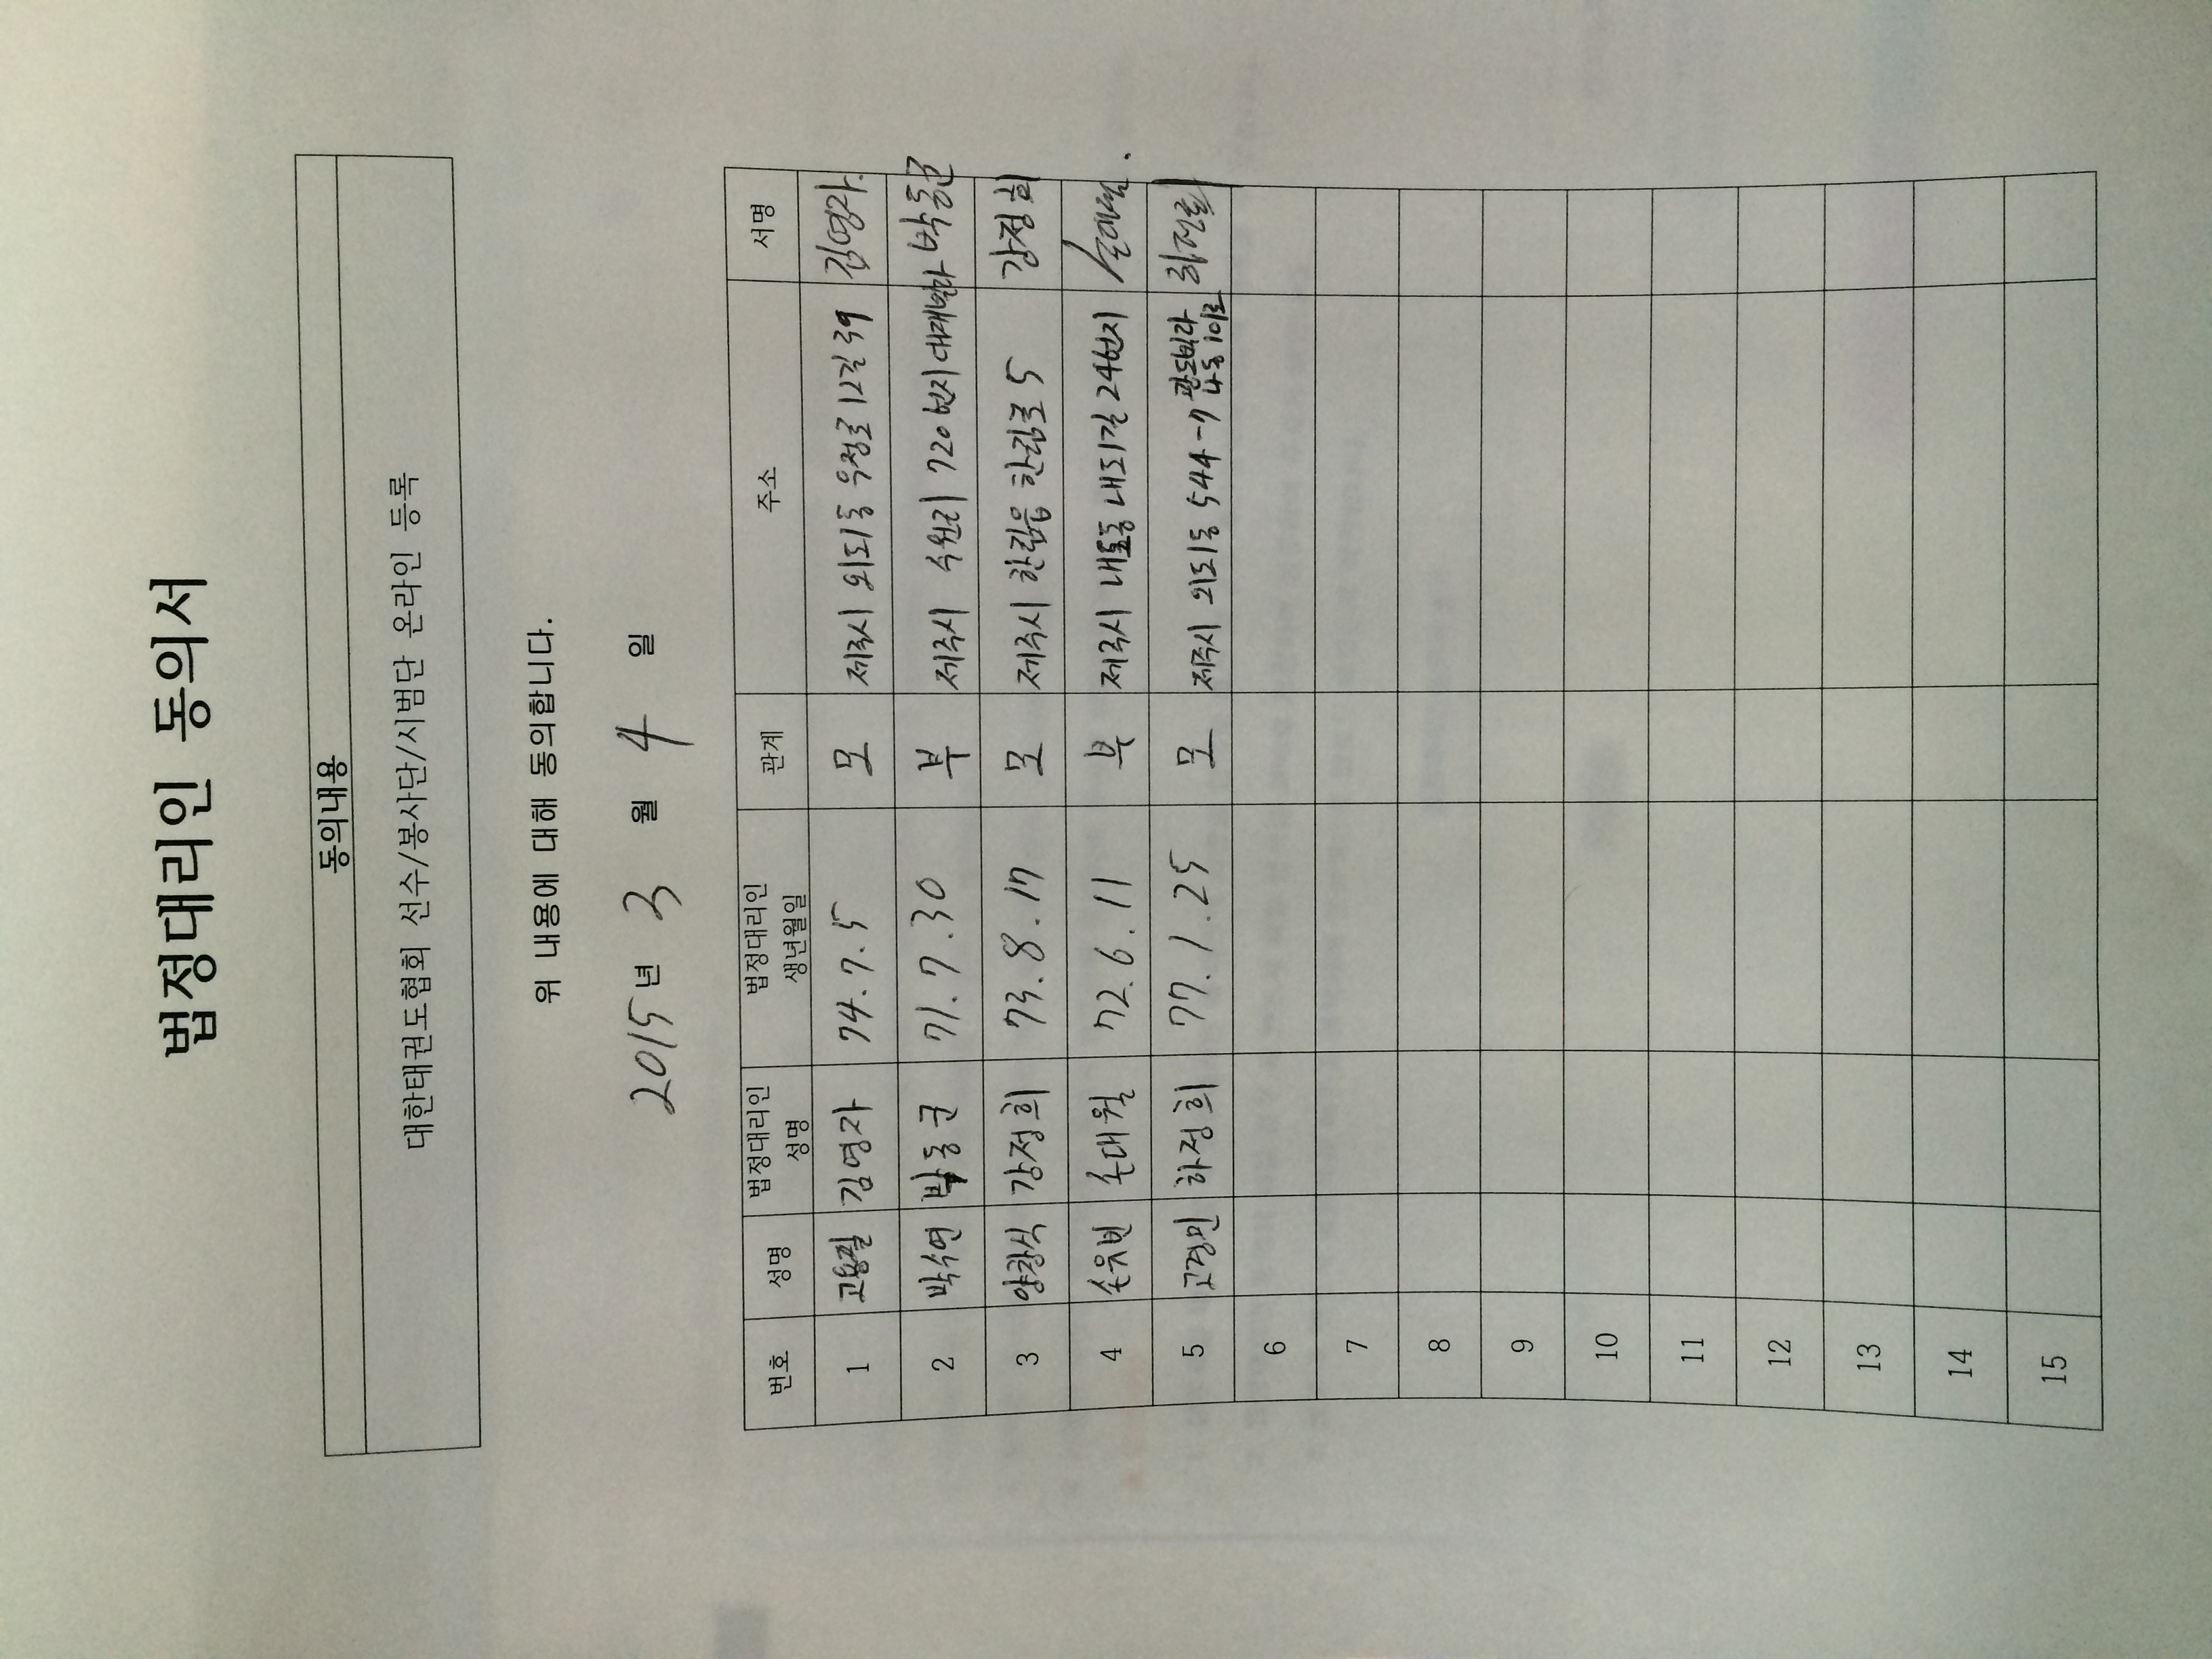 법정대리인 동의서
동의내용
대한태권도협회 선수/봉사단/시범단 온라인 등록
위 내용에 대해 동의합니다.
2015년 3 월 4 일
번호 성명 법정대리인 성명 법정대리인 생년월일 관계 주소 서명
1 고용필 김영자 74.7.5 모 제주시 외도동 우정로12길 39 김영자
2 박수연 박동균 71.7.30 부 제주시 수원리 720번지 박동균
3 양창식 강정희 73.8.17 모 제주시 한림읍 한림로 5 강정희
4 손유빈 손대월 72.6.11 부 제주시 내도동 내도길 24번지 손대월
5 고경민 하정희 77.1.25 모 제주시 외도동 544-7 나동 101호 하정희
6
7
8
9
10
11
12
13
14
15